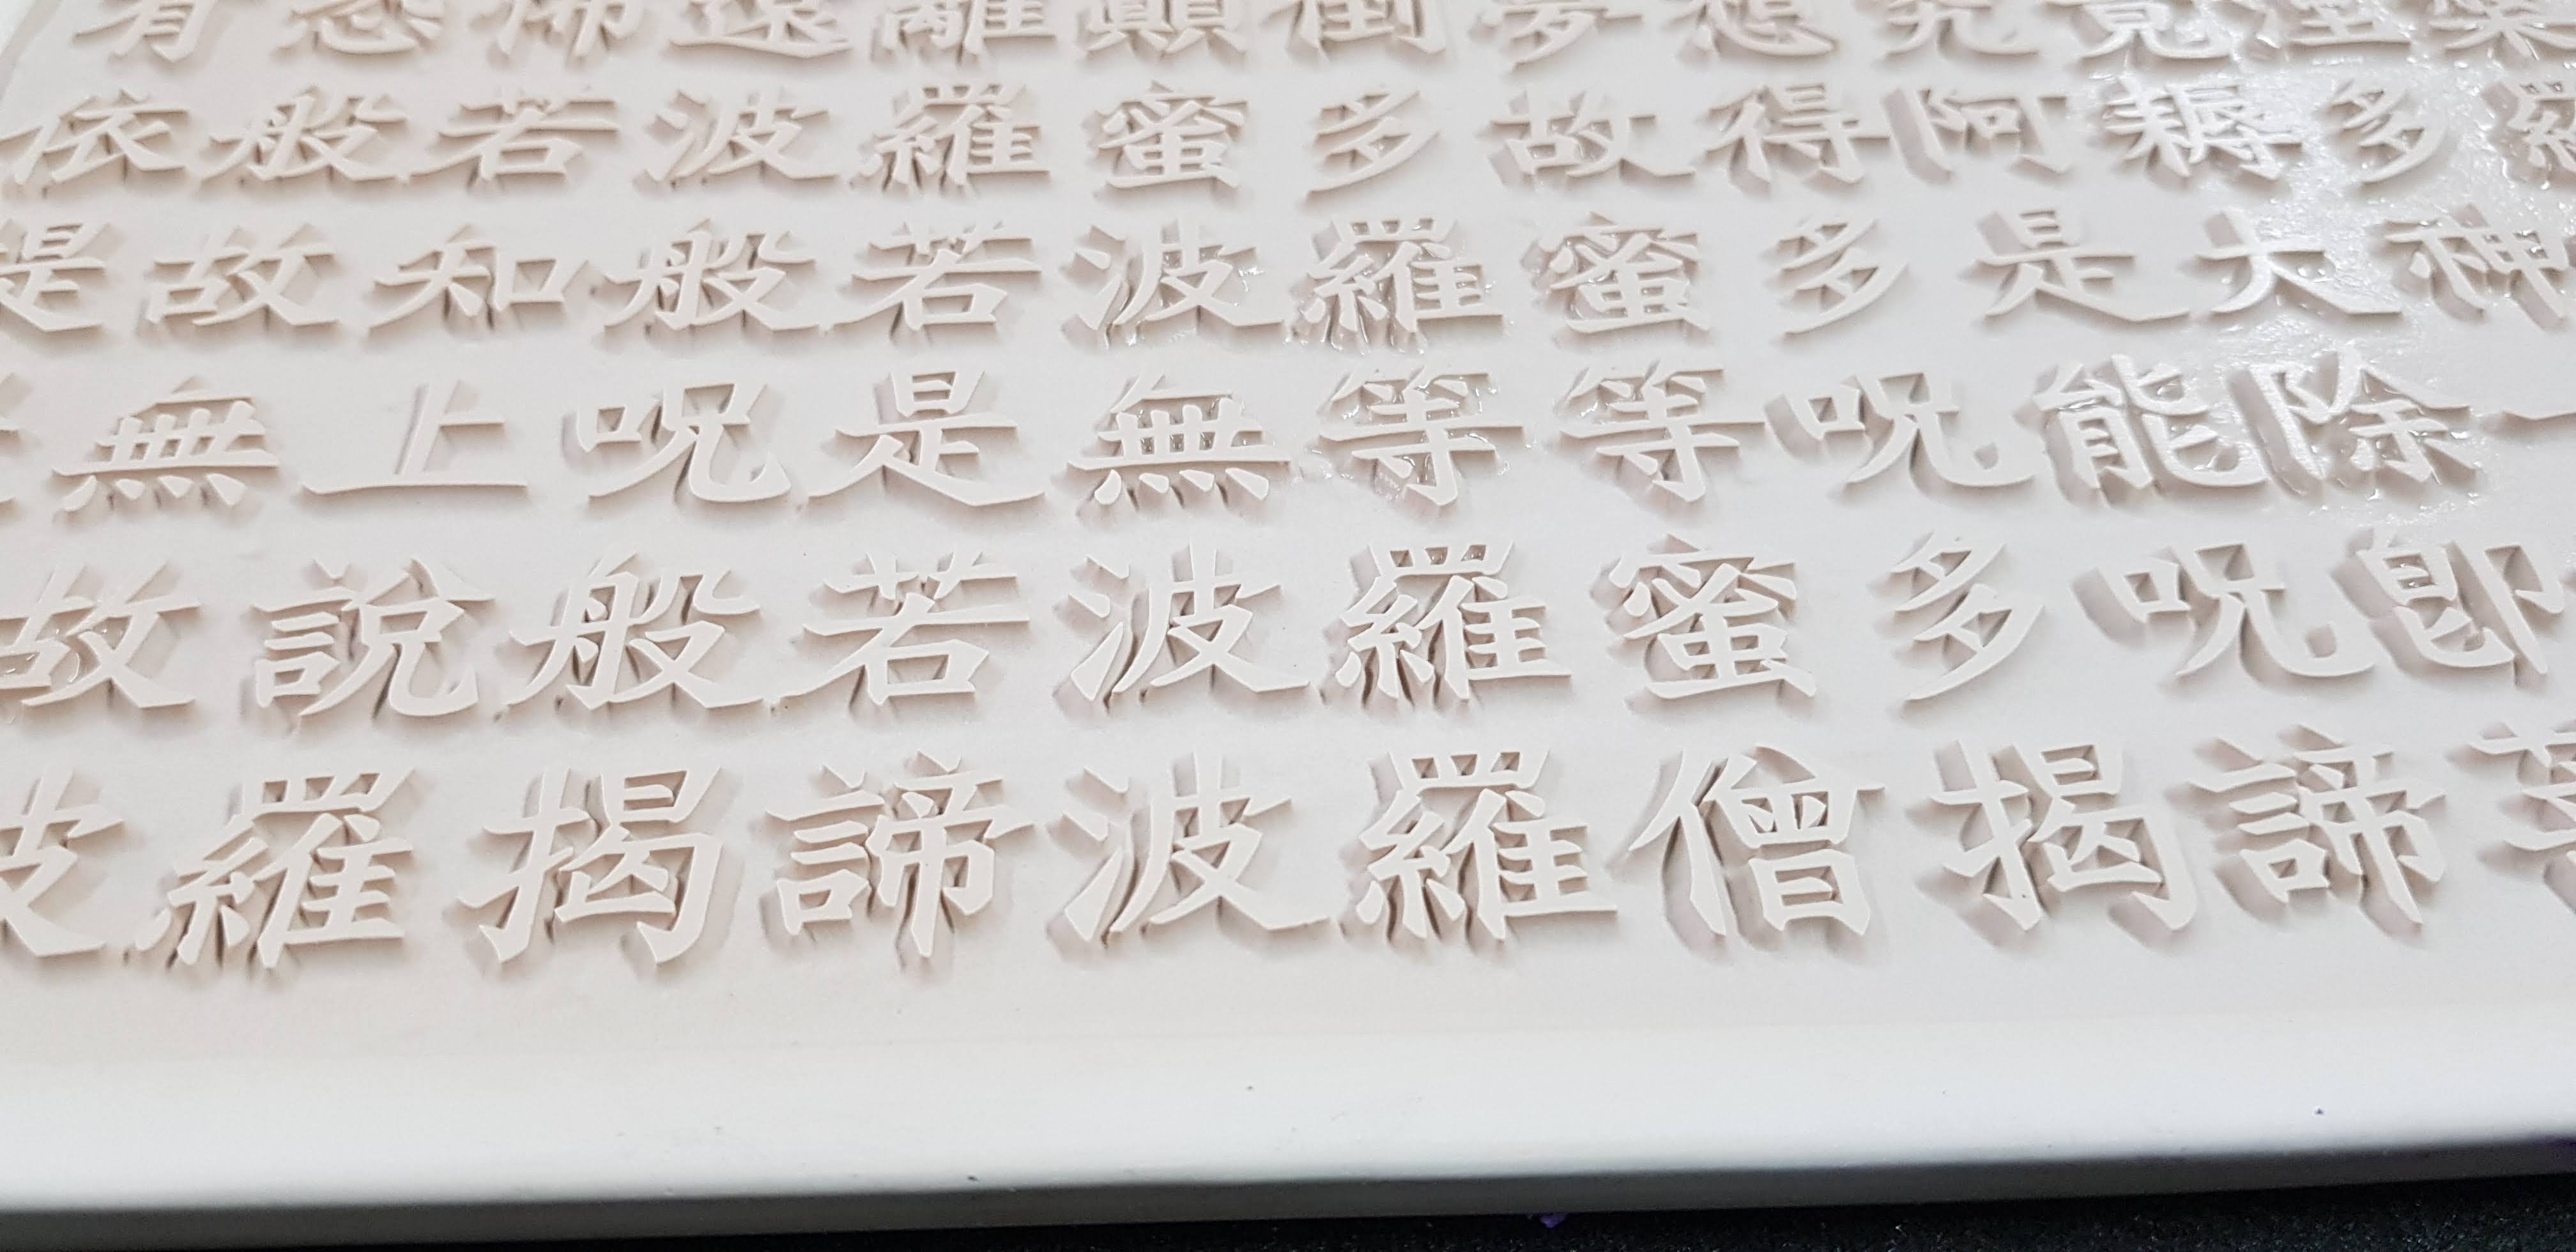 有恐怖遠離顚倒夢想究竟涅槃
依般若波羅蜜多故得阿耨多羅
是故知般若波羅蜜多是大神
無上呪是無等等呪能除一
故說般若波羅蜜多呪卽
波羅揭諦波羅僧揭諦菩